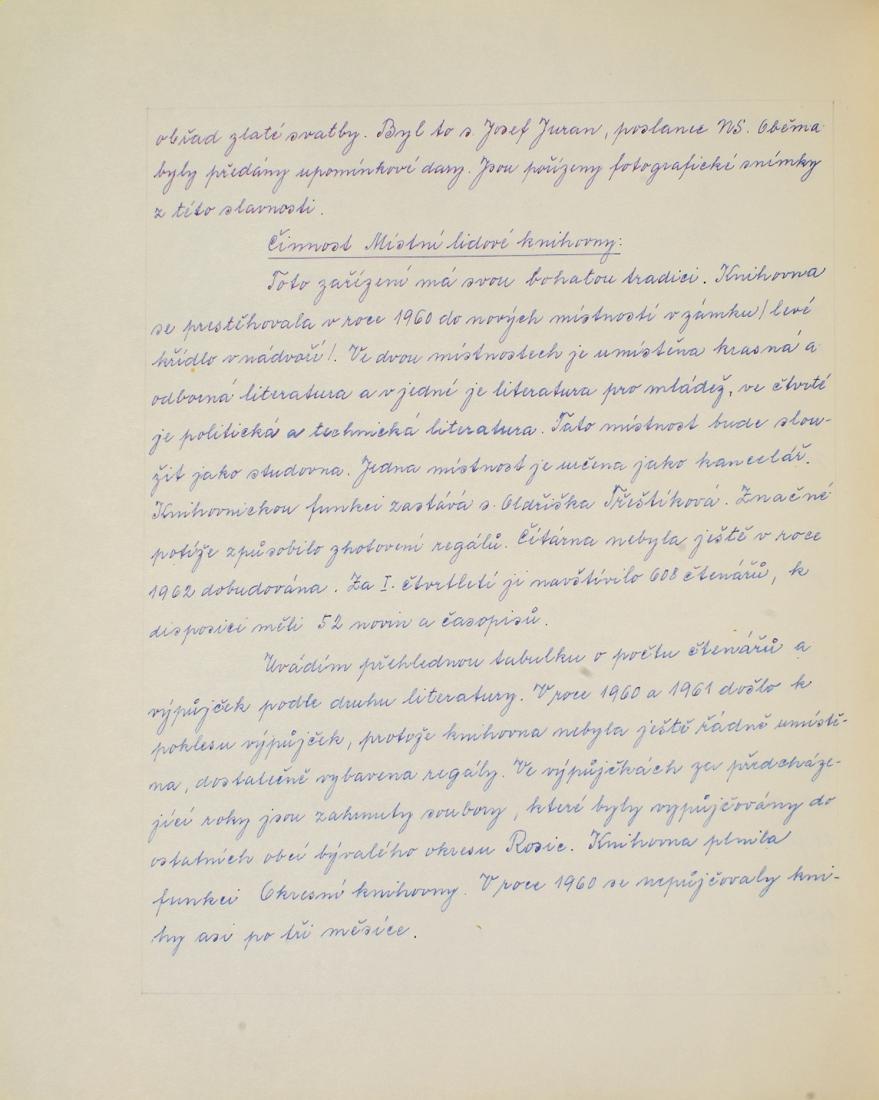 obřad zlaté svatby. Byl to s Josef Juran, poslanec NS. Oběma
byly předány upomínkové dary. Jsou pořízeny fotografické snímky
z této slavnosti.
Činnost Místní lidové knihovny:
Toto zařízení má svou bohatou tradici. Knihovna
se prestěhovala v roce 1960 do nových místností v zámku/levé
křídlo v nádvoří/. Ve dvou místnostech je umístěna krasná a
odborná literatura a v jedné je literatura pro mládež, ve čtvrté
je politická a technická literatura. Tato místnost bude slou-
žit jako studovna. Jedna místnost je určena jako kancelář.
Knihovnickou funkci zastává s. Oldřiška Třeštíková. Značné
potíže způsobilo zhotovení regálů. Čítárna nebyla ještě v roce
1962 dobudována. Za I. čtvrtletí ji navštívilo 608 čtenářů, k
disposici měli 52 novin a časopisů.
Uvádím přehlednou tabulku o počtu čtenářů a
výpůjček podle druhu literatury. V roce 1960 a 1961 došlo k
poklesu výpůjček, protože knihovna nebyla ještě řádně umístě-
na, dostatečně vybavena regály. Ve výpůjčkách za předcháze-
jící roky jsou zahrnuty soubory, které byly vypůjčovány do
ostatních obcí bývalého okresu Rosic. Knihovna plnila
funkci Okresní knihovny. V roce 1960 se nepůjčovaly kni-
hy asi po tři měsíce.